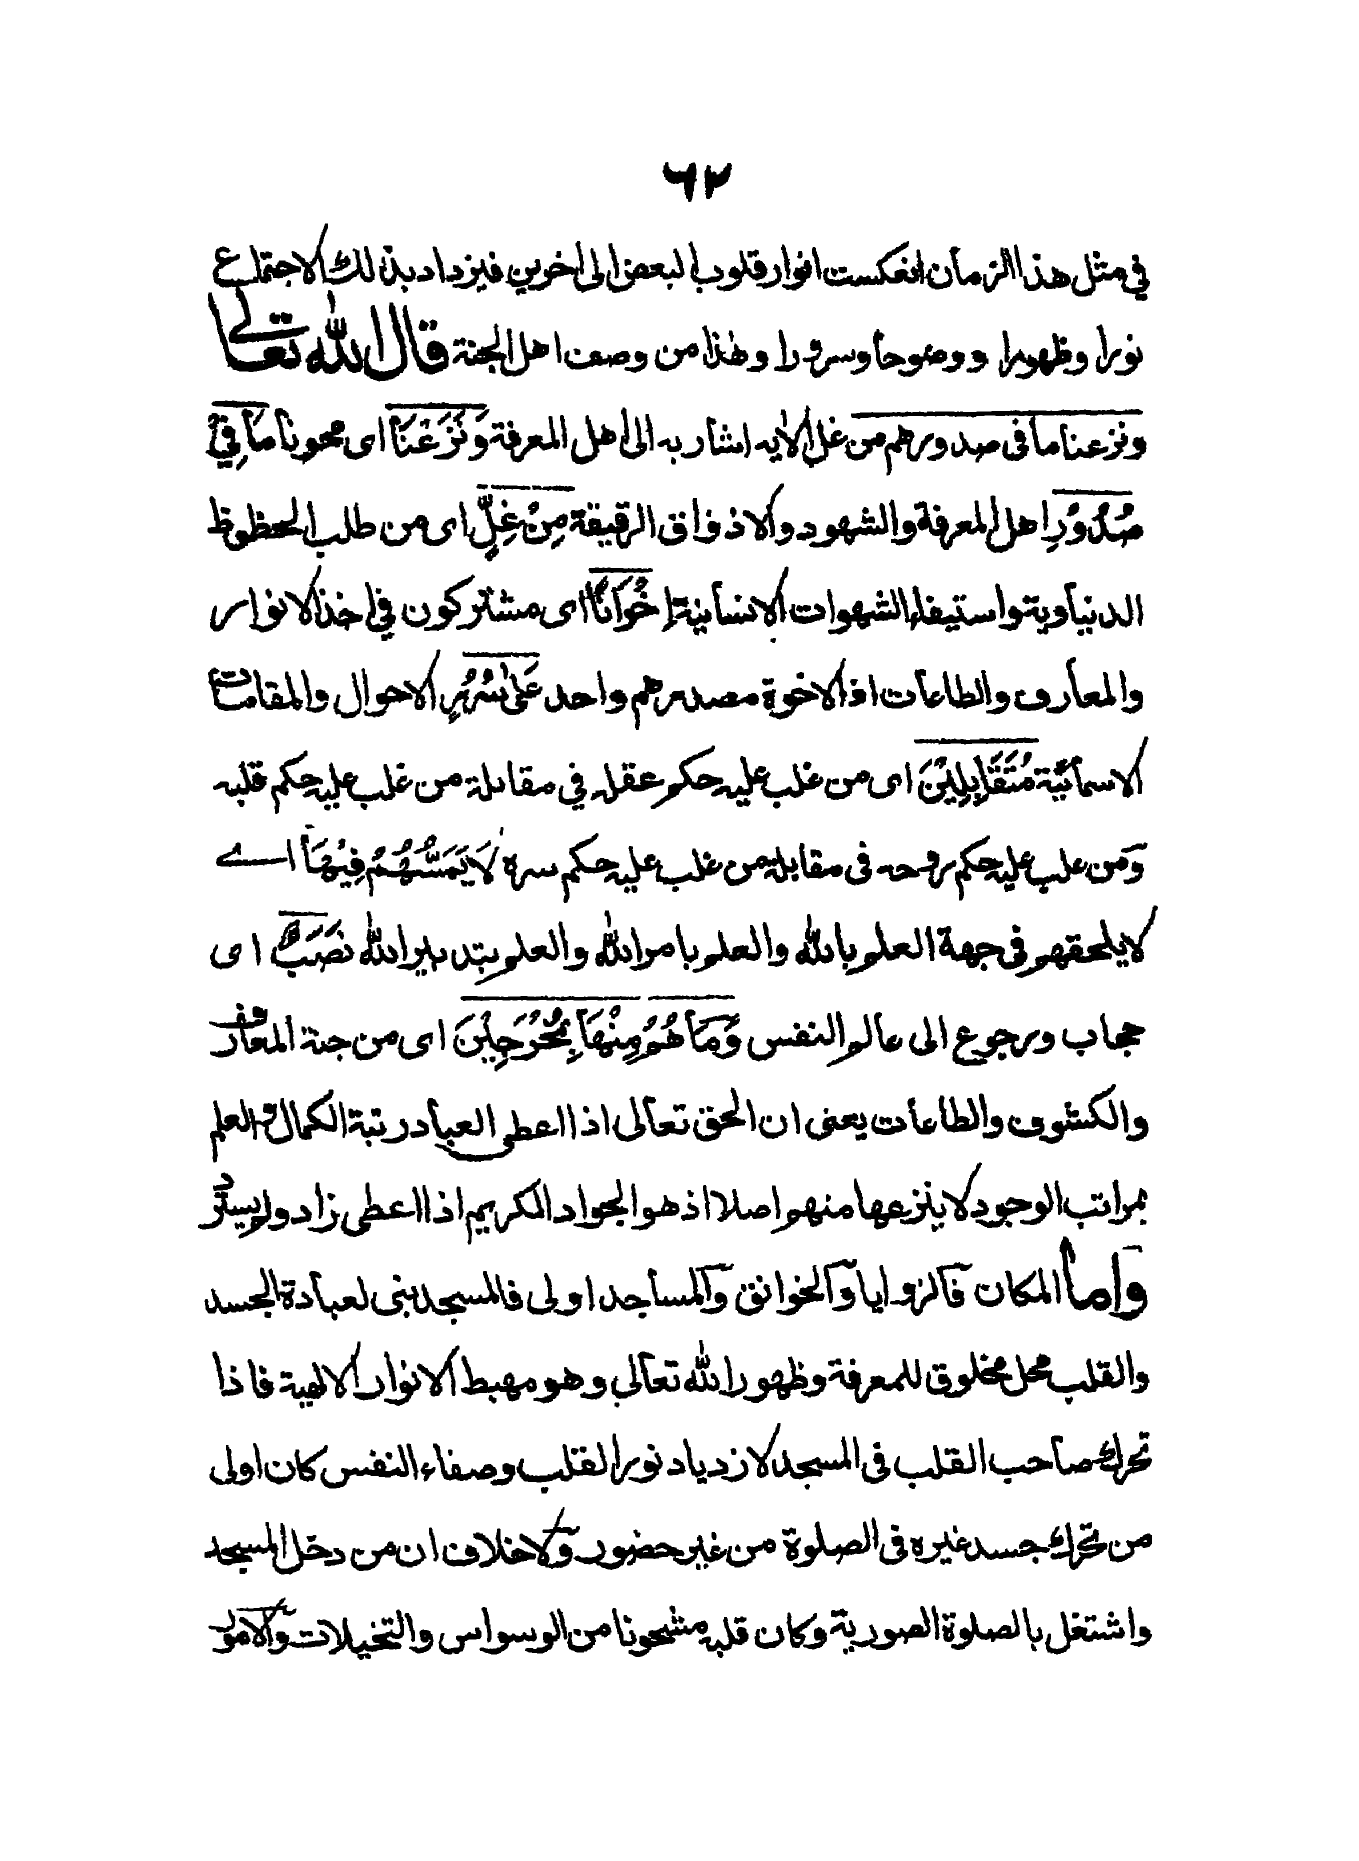 ٦٢
في مثل هذا الزمان انعكست انوار قلوب البعض الى اخرين فيزداد بذلك الاجتماع
نورا وظهورا ووضوحا وسرورا وهذا من وصف اهل الجنة قال الله تعالى
ونزعنا ما فى صدورهم من غل الايه اشار به الى اهل المعرفة وَنَزَعْنَا اى محونا مَا فِيْ
صُدُوْرِ اهل المعرفة والشهود والاذواق الرقيقة مِنْ غِلٍّ اى من طلب الحظوظ
الدنياوية واستيفاء الشهوات الانسانية إِخْوَانًا اى مشتركون في اخذ الانوار
والمعارف والطاعات اذ الاخوة مصدرهم واحد عَلىٰ سُرُرٍ الاحوال والمقامات
الاسمائيّة مُتَقَابِلِيْنَ اى من غلب عليه حكم عقله في مقابلة من غلب عليه حكم قلبه
وَمن غلب عليه حكم روحه فى مقابلة من غلب عليه حكم سره لَا يَمَسُّهُمْ فِيْهَا اے
لا يلحقهم فى جهة العلم بالله والعلم بامر الله والعلم بتدبير الله نَصَبٌ اى
حجاب ورجوع الى عالم النفس وَمَا هُمْ مِنْهَا بِمُخْرَجِيْنَ اى من جنة المعارف
والكشوف والطاعات يعنى ان الحق تعالى اذا اعطى العباد رتبة الكمال والعلم
بمراتب الوجود لا ينزعها منهم اصلا اذ هو الجواد الكريم اذا اعطى زاد ولم يسترد
وَاما المكان فَالزوايا وَالخوانق وَالمساجد اولى فالمسجد بنى لعبادة الجسد
والقلب محل مخلوق للمعرفة وظهور الله تعالى وهو مهبط الانوار الالهية فاذا
تحرك صاحب القلب فى المسجد لازدياد نور القلب وصفاء النفس كان اولى
من تحرك جسد غيره فى الصلوة من غير حضور وَلا خلاف ان من دخل المسجد
واشتغل بالصلوة الصورية وكان قلبه مشحونا من الوسواس والتخيلات والامور